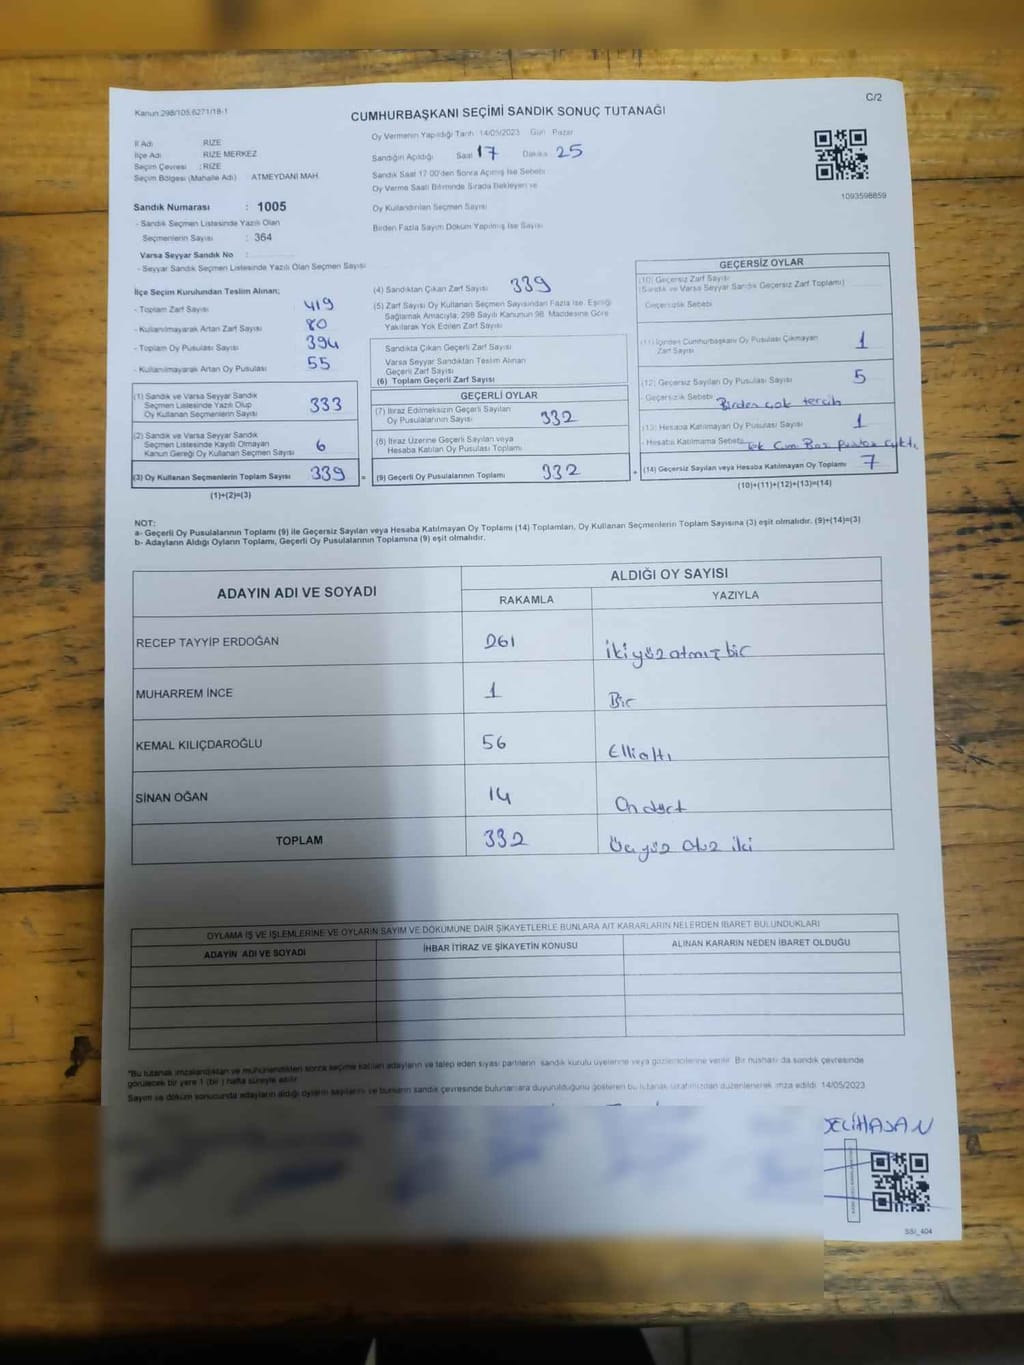 Kanun 298/105 6271/18-1
C/2
CUMHURBAŞKANI SEÇİMİ SANDIK SONUÇ TUTANAĞI
İl Adı RİZE
İlçe Adı RİZE MERKEZ
Seçim Çevresi : RİZE
Seçim Bölgesi (Mahalle Adı) ATMEYDANI MAH.
Oy Vermenin Yapıldığı Tarih : 14/05/2023 Gün Pazar
Sandığın Açıldığı Saat 17 Dakika 25
Sandık Saat 17:00'den Sonra Açılmış İse Sebebi
Oy Verme Saati Bitiminde Sırada Bekleyen ve
Oy Kullandırılan Seçmen Sayısı
Birden Fazla Sayım Döküm Yapılmış İse Sayısı
1093598859
Sandık Numarası : 1005
- Sandık Seçmen Listesinde Yazılı Olan
Seçmenlerin Sayısı : 364
Varsa Seyyar Sandık No :
- Seyyar Sandık Seçmen Listesinde Yazılı Olan Seçmen Sayısı
İlçe Seçim Kurulundan Teslim Alınan;
- Toplam Zarf Sayısı 419
- Kullanılmayarak Artan Zarf Sayısı 80
- Toplam Oy Pusulası Sayısı 394
- Kullanılmayarak Artan Oy Pusulası 55
(1) Sandık ve Varsa Seyyar Sandık
Seçmen Listesinde Yazılı Olup
Oy Kullanan Seçmenlerin Sayısı 333
(2) Sandık ve Varsa Seyyar Sandık
Seçmen Listesinde Kayıtlı Olmayan
Kanun Gereği Oy Kullanan Seçmen Sayısı 6
(3) Oy Kullanan Seçmenlerin Toplam Sayısı 339
(1)+(2)=(3)
(4) Sandıktan Çıkan Zarf Sayısı 339
(5) Zarf Sayısı Oy Kullanan Seçmen Sayısından Fazla İse, Eşitliği
Sağlamak Amacıyla, 298 Sayılı Kanunun 98. Maddesine Göre
Yakılarak Yok Edilen Zarf Sayısı
Sandıkta Çıkan Geçerli Zarf Sayısı
Varsa Seyyar Sandıktan Teslim Alınan
Geçerli Zarf Sayısı
(6) Toplam Geçerli Zarf Sayısı
GEÇERLİ OYLAR
(7) İtiraz Edilmeksizin Geçerli Sayılan
Oy Pusulalarının Sayısı 332
(8) İtiraz Üzerine Geçerli Sayılan veya
Hesaba Katılan Oy Pusulası Toplamı
= (9) Geçerli Oy Pusulalarının Toplamı 332
GEÇERSİZ OYLAR
(10) Geçersiz Zarf Sayısı
(Sandık ve Varsa Seyyar Sandık Geçersiz Zarf Toplamı)
Geçersizlik Sebebi
(11) İçinden Cumhurbaşkanı Oy Pusulası Çıkmayan
Zarf Sayısı 1
(12) Geçersiz Sayılan Oy Pusulası Sayısı 5
- Geçersizlik Sebebi Birden çok tercih
(13) Hesaba Katılmayan Oy Pusulası Sayısı 1
- Hesaba Katılmama Sebebi Tek Cum Baş pusla çıktı.
+ (14) Geçersiz Sayılan veya Hesaba Katılmayan Oy Toplamı 7
(10)+(11)+(12)+(13)=(14)
NOT:
a- Geçerli Oy Pusulalarının Toplamı (9) ile Geçersiz Sayılan veya Hesaba Katılmayan Oy Toplamı (14) Toplamları, Oy Kullanan Seçmenlerin Toplam Sayısına (3) eşit olmalıdır. (9)+(14)=(3)
b- Adayların Aldığı Oyların Toplamı, Geçerli Oy Pusulalarının Toplamına (9) eşit olmalıdır.
ADAYIN ADI VE SOYADI ALDIĞI OY SAYISI
RAKAMLA YAZIYLA
RECEP TAYYİP ERDOĞAN 261 ikiyüzatmışbir
MUHARREM İNCE 1 Bir
KEMAL KILIÇDAROĞLU 56 Ellialtı
SİNAN OĞAN 14 Ondört
TOPLAM 332 Üçyüz otuz iki
OYLAMA İŞ VE İŞLEMLERİNE VE OYLARIN SAYIM VE DÖKÜMÜNE DAİR ŞİKAYETLERLE BUNLARA AİT KARARLARIN NELERDEN İBARET BULUNDUKLARI
ADAYIN ADI VE SOYADI İHBAR İTİRAZ VE ŞİKAYETİN KONUSU ALINAN KARARIN NEDEN İBARET OLDUĞU
*Bu tutanak imzalandıktan ve mühürlendikten sonra seçime katılan adayların ve talep eden siyasi partilerin sandık kurulu üyelerine veya gözlemcilerine verilir. Bir nüshası da sandık çevresinde
görülecek bir yere 1 (bir) hafta süreyle asılır.
Sayım ve döküm sonucunda adayların aldığı oyların sayılarını ve bunların sandık çevresinde bulunanlara duyurulduğunu gösteren bu tutanak tarafımızdan düzenlenerek imza edildi. 14/05/2023
DELİHASAN
SSI_404